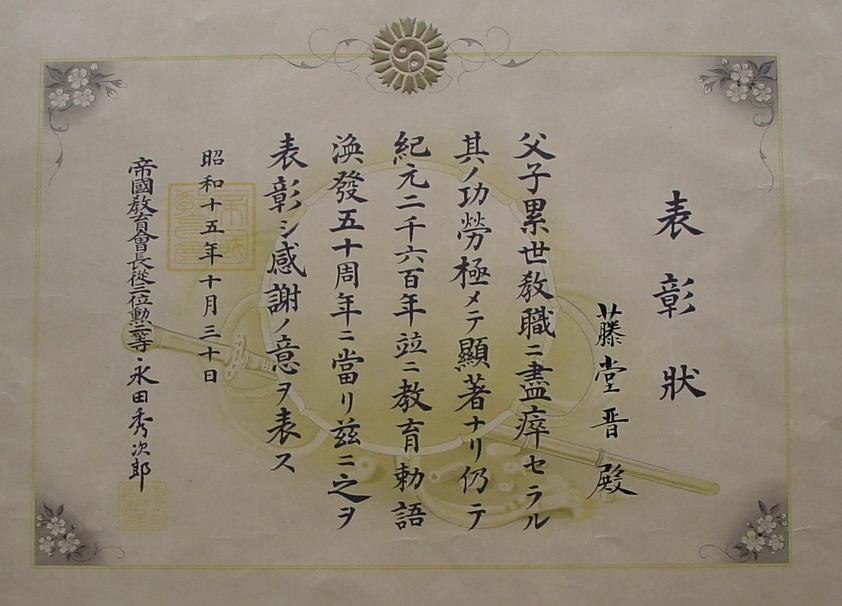 表彰狀
藤堂晋殿
父子累世教職ニ盡瘁セラル
其ノ功勞極メテ顯著ナリ仍テ
紀元二千六百年竝ニ教育勅語
渙發五十周年ニ當リ茲ニ之ヲ
表彰シ感謝ノ意ヲ表ス
昭和十五年十月三十日
帝國教育會長從三位勲二等永田秀次郎